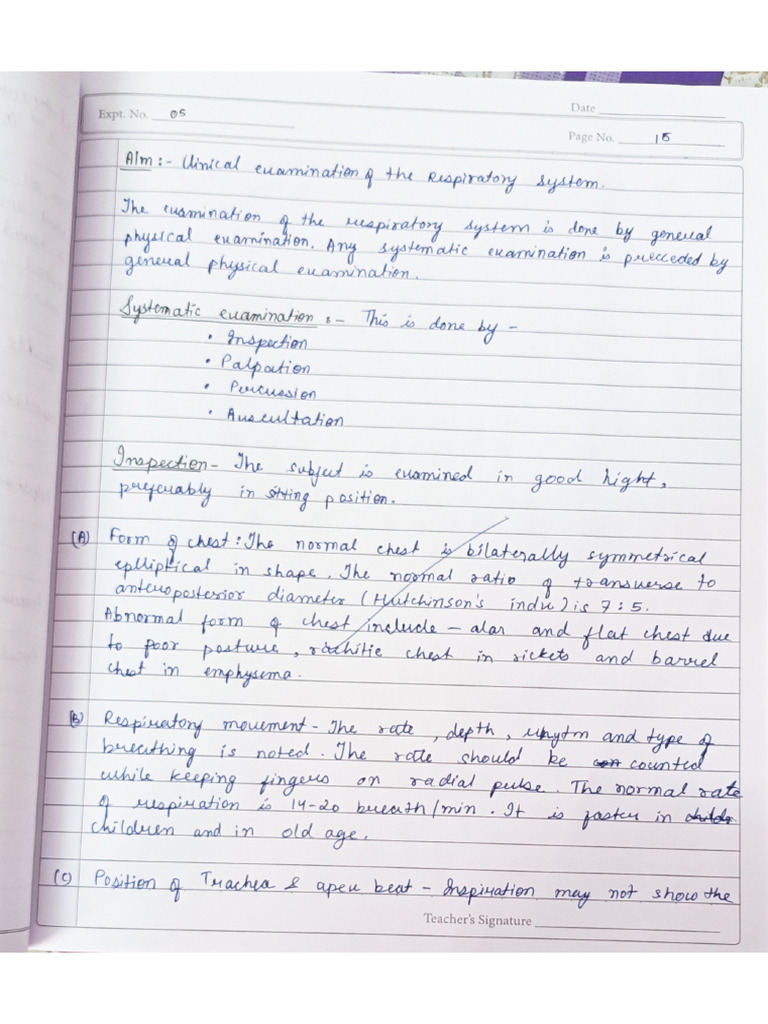 Expt. No. 05
Date
Page No. 15
Aim :- Clinical examination of the Respiratory System.
The examination of the respiratory system is done by general
physical examination. Any systematic examination is preceded by
general physical examination.
Systematic examination :- This is done by -
• Inspection
• Palpation
• Percussion
• Auscultation
Inspection - The subject is examined in good light,
preferably in sitting position.
(A) Form of chest : The normal chest is bilaterally symmetrical
elliptical in shape. The normal ratio of transverse to
anteroposterior diameter (Hutchinson's index) is 7:5.
Abnormal form of chest include - alar and flat chest due
to poor posture, rachitic chest in rickets and barrel
chest in emphysema.
(B) Respiratory movement - The rate, depth, rhytm and type of
breathing is noted. The rate should be counted
while keeping fingers on radial pulse. The normal rate
of respiration is 14-20 breath/min. It is faster in
children and in old age.
(C) Position of Trachea & apex beat - Inspiration may not show the
Teacher's Signature